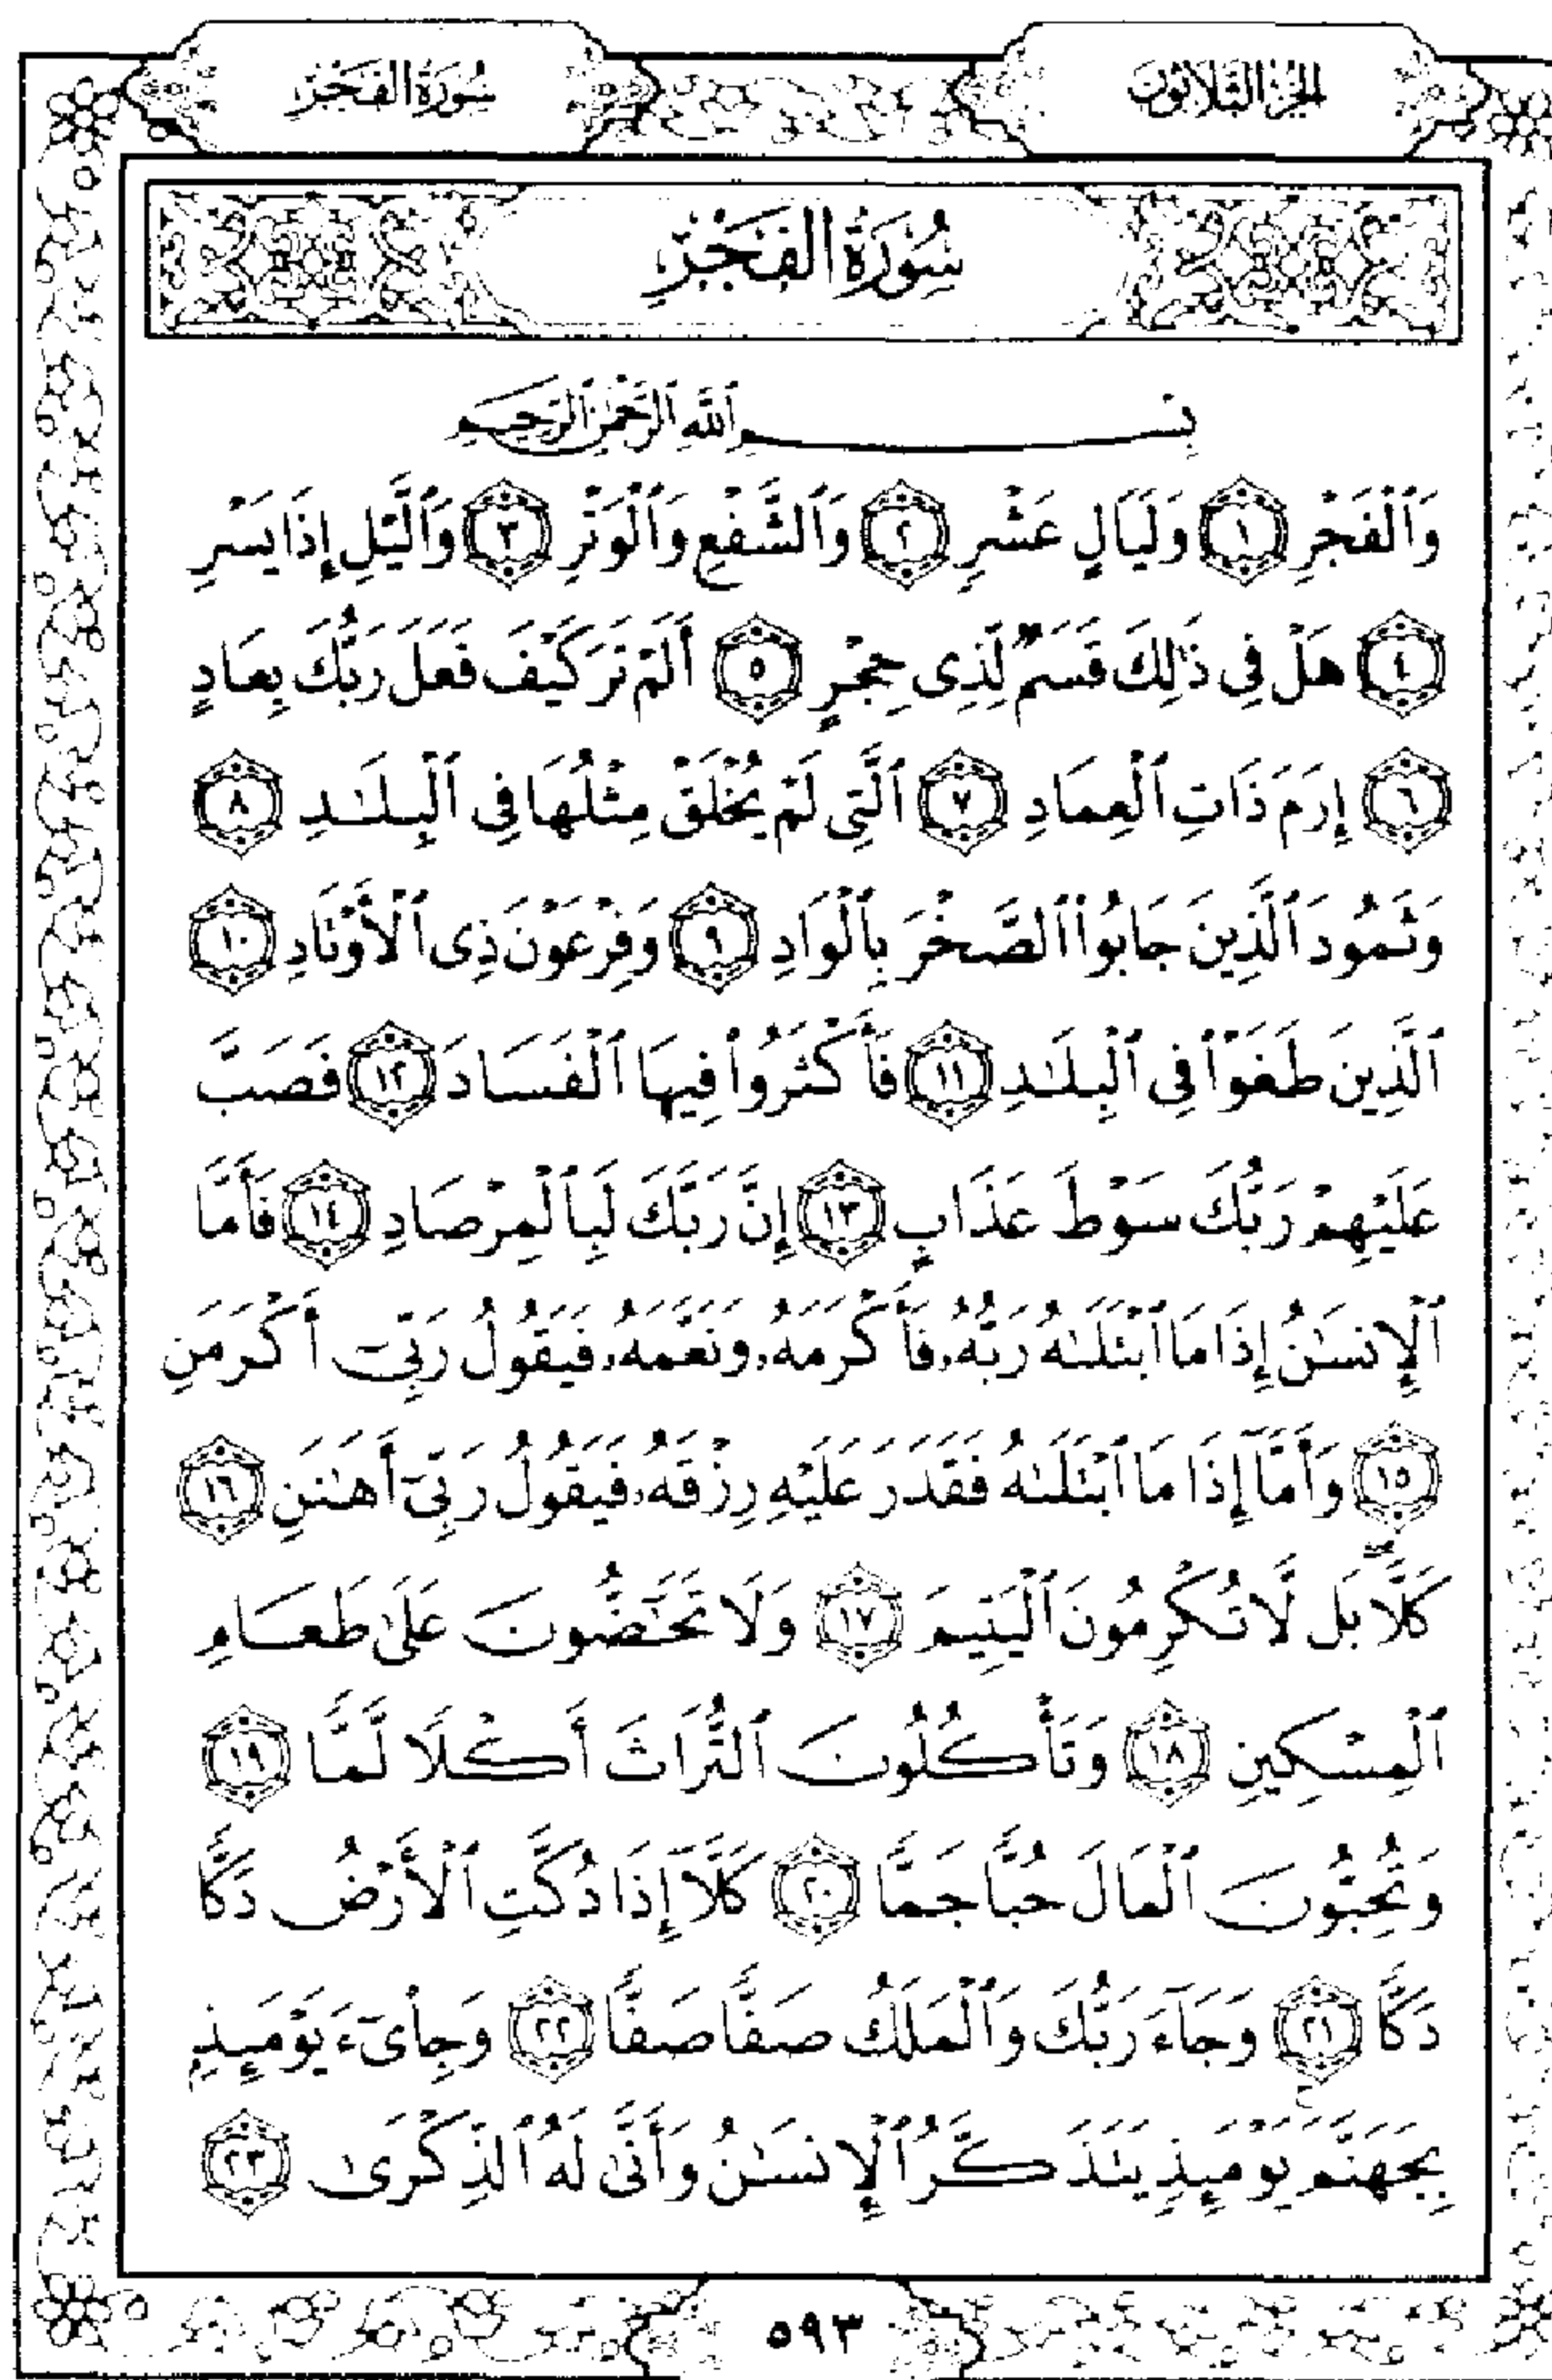 الجزء الثلاثون
سورة الفجر
سُورَةُ الفَجْرِ
بِسْمِ ٱللَّهِ ٱلرَّحْمَٰنِ ٱلرَّحِيمِ
وَٱلْفَجْرِ ١ وَلَيَالٍ عَشْرٍ ٢ وَٱلشَّفْعِ وَٱلْوَتْرِ ٣ وَٱلَّيْلِ إِذَا يَسْرِ
٤ هَلْ فِى ذَٰلِكَ قَسَمٌ لِّذِى حِجْرٍ ٥ أَلَمْ تَرَ كَيْفَ فَعَلَ رَبُّكَ بِعَادٍ
٦ إِرَمَ ذَاتِ ٱلْعِمَادِ ٧ ٱلَّتِى لَمْ يُخْلَقْ مِثْلُهَا فِى ٱلْبِلَٰدِ ٨
وَثَمُودَ ٱلَّذِينَ جَابُوا۟ ٱلصَّخْرَ بِٱلْوَادِ ٩ وَفِرْعَوْنَ ذِى ٱلْأَوْتَادِ ١٠
ٱلَّذِينَ طَغَوْا۟ فِى ٱلْبِلَٰدِ ١١ فَأَكْثَرُوا۟ فِيهَا ٱلْفَسَادَ ١٢ فَصَبَّ
عَلَيْهِمْ رَبُّكَ سَوْطَ عَذَابٍ ١٣ إِنَّ رَبَّكَ لَبِٱلْمِرْصَادِ ١٤ فَأَمَّا
ٱلْإِنسَٰنُ إِذَا مَا ٱبْتَلَىٰهُ رَبُّهُۥ فَأَكْرَمَهُۥ وَنَعَّمَهُۥ فَيَقُولُ رَبِّىٓ أَكْرَمَنِ
١٥ وَأَمَّآ إِذَا مَا ٱبْتَلَىٰهُ فَقَدَرَ عَلَيْهِ رِزْقَهُۥ فَيَقُولُ رَبِّىٓ أَهَٰنَنِ ١٦
كَلَّا ۖ بَل لَّا تُكْرِمُونَ ٱلْيَتِيمَ ١٧ وَلَا تَحَٰٓضُّونَ عَلَىٰ طَعَامِ
ٱلْمِسْكِينِ ١٨ وَتَأْكُلُونَ ٱلتُّرَاثَ أَكْلًا لَّمًّا ١٩
وَتُحِبُّونَ ٱلْمَالَ حُبًّا جَمًّا ٢٠ كَلَّآ إِذَا دُكَّتِ ٱلْأَرْضُ دَكًّا
دَكًّا ٢١ وَجَآءَ رَبُّكَ وَٱلْمَلَكُ صَفًّا صَفًّا ٢٢ وَجِا۟ىٓءَ يَوْمَئِذٍۭ
بِجَهَنَّمَ ۚ يَوْمَئِذٍ يَتَذَكَّرُ ٱلْإِنسَٰنُ وَأَنَّىٰ لَهُ ٱلذِّكْرَىٰ ٢٣
٥٩٣